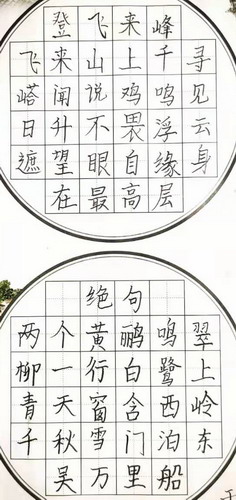 登飞来峰
飞来山上千寻
嵣闻说鸡鸣见
日升不畏浮云
遮望眼自缘身
在最高层
绝句
两个黄鹂鸣翠
柳一行白鹭上
青天窗含西岭
千秋雪门泊东
吴万里船